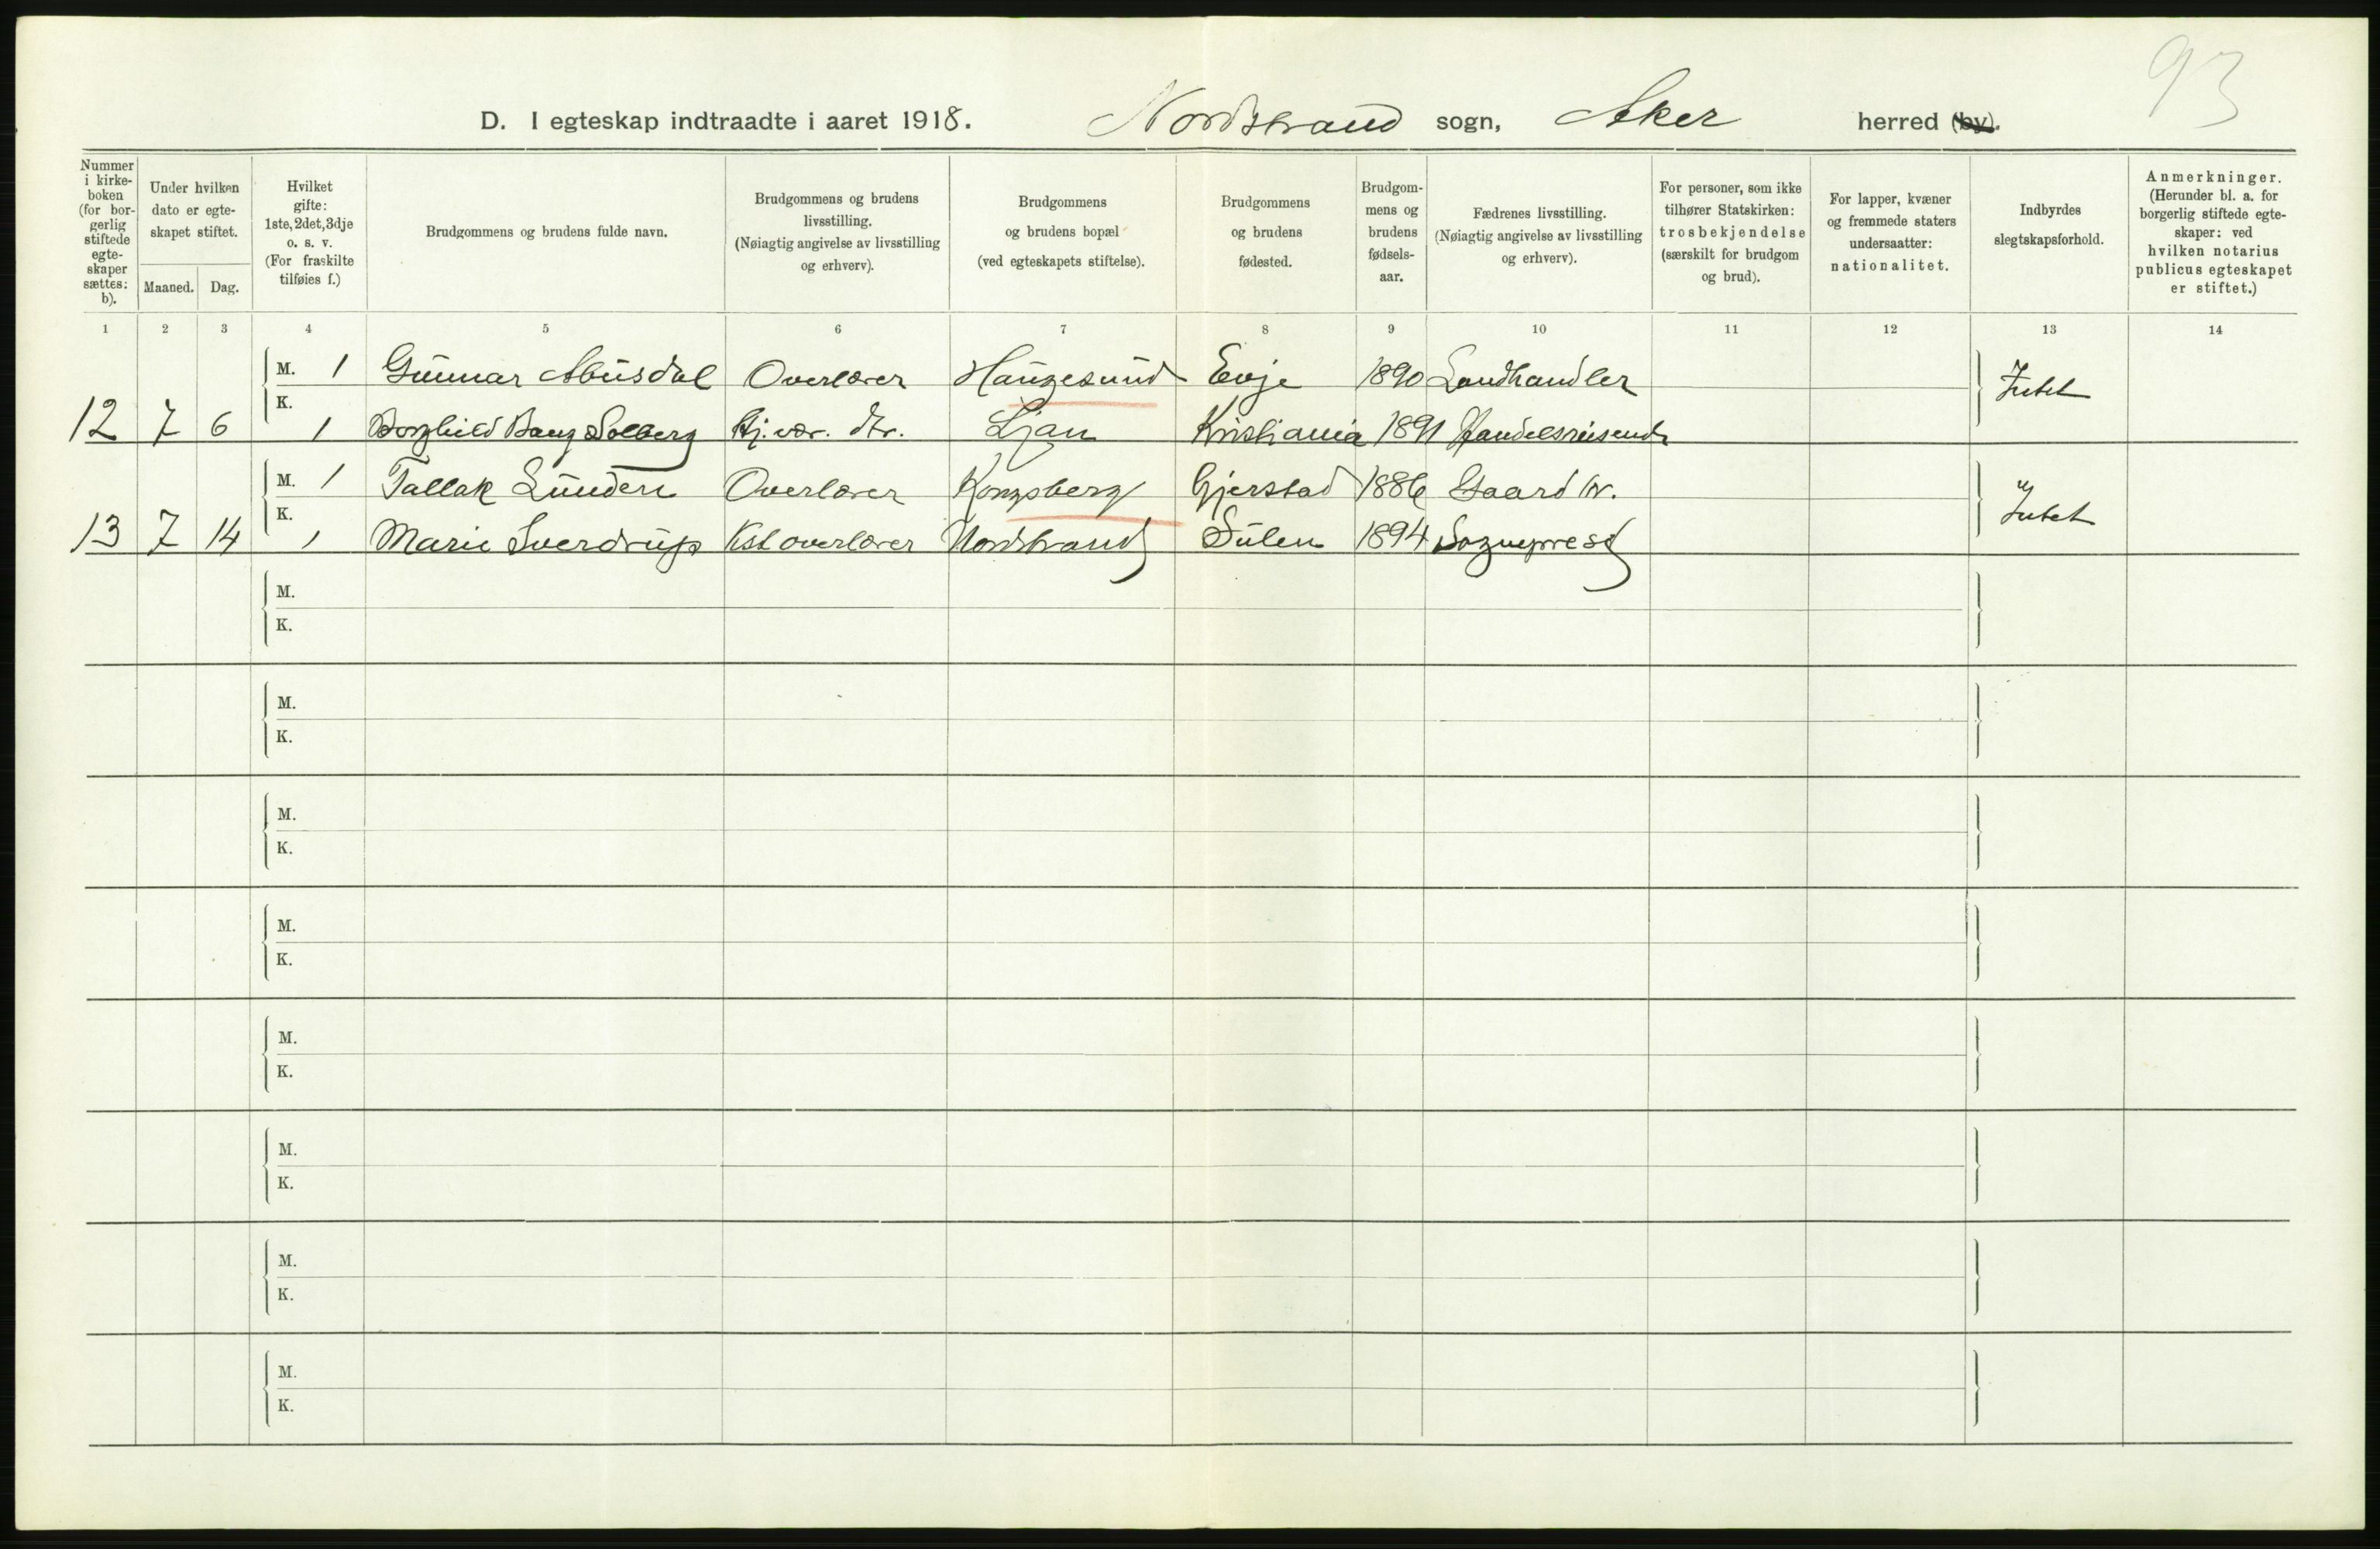 93
D. I egteskap indtraadte i aaret 1918. Nordstrand sogn, Aker herred (by).
Nummer i kirke-boken (for bor-gerlig stiftede egte-skaper sættes: b).
Under hvilken dato er egte-skapet stiftet.
Maaned. Dag.
Hvilket gifte: 1ste, 2det, 3dje o. s. v. (For fraskilte tilføies f.)
Brudgommens og brudens fulde navn.
Brudgommens og brudens livsstilling. (Nøiagtig angivelse av livsstilling og erhverv).
Brudgommens og brudens bopæl (ved egteskapets stiftelse).
Brudgommens og brudens fødested.
Brudgom-mens og brudens fødsels-aar.
Fædrenes livsstilling. (Nøiagtig angivelse av livsstilling og erhverv).
For personer, som ikke tilhører Statskirken: trosbekjendelse (særskilt for brudgom og brud).
For lapper, kvæner og fremmede staters undersaatter: nationalitet.
Indbyrdes slegtskapsforhold.
Anmerkninger. (Herunder bl. a. for borgerlig stiftede egte-skaper: ved hvilken notarius publicus egteskapet er stiftet.)
1 2 3 4 5 6 7 8 9 10 11 12 13 14
M. 1 Gunnar Abusdal Overlærer Haugesund Evje 1890 Landhandler Intet
12 7 6 K. 1 Borghild Bang Solberg Hj.vær. dtr. Ljan Kristiania 1891 Handelsreisende
M. 1 Tallak Lunden Overlærer Kongsberg Gjerstad 1886 Gaardbr. Intet
13 7 14 K. 1 Marie Sverdrup Kst overlærer Nordstrand Sulen 1894 Sogneprest
M.
K.
M.
K.
M.
K.
M.
K.
M.
K.
M.
K.
M.
K.
M.
K.